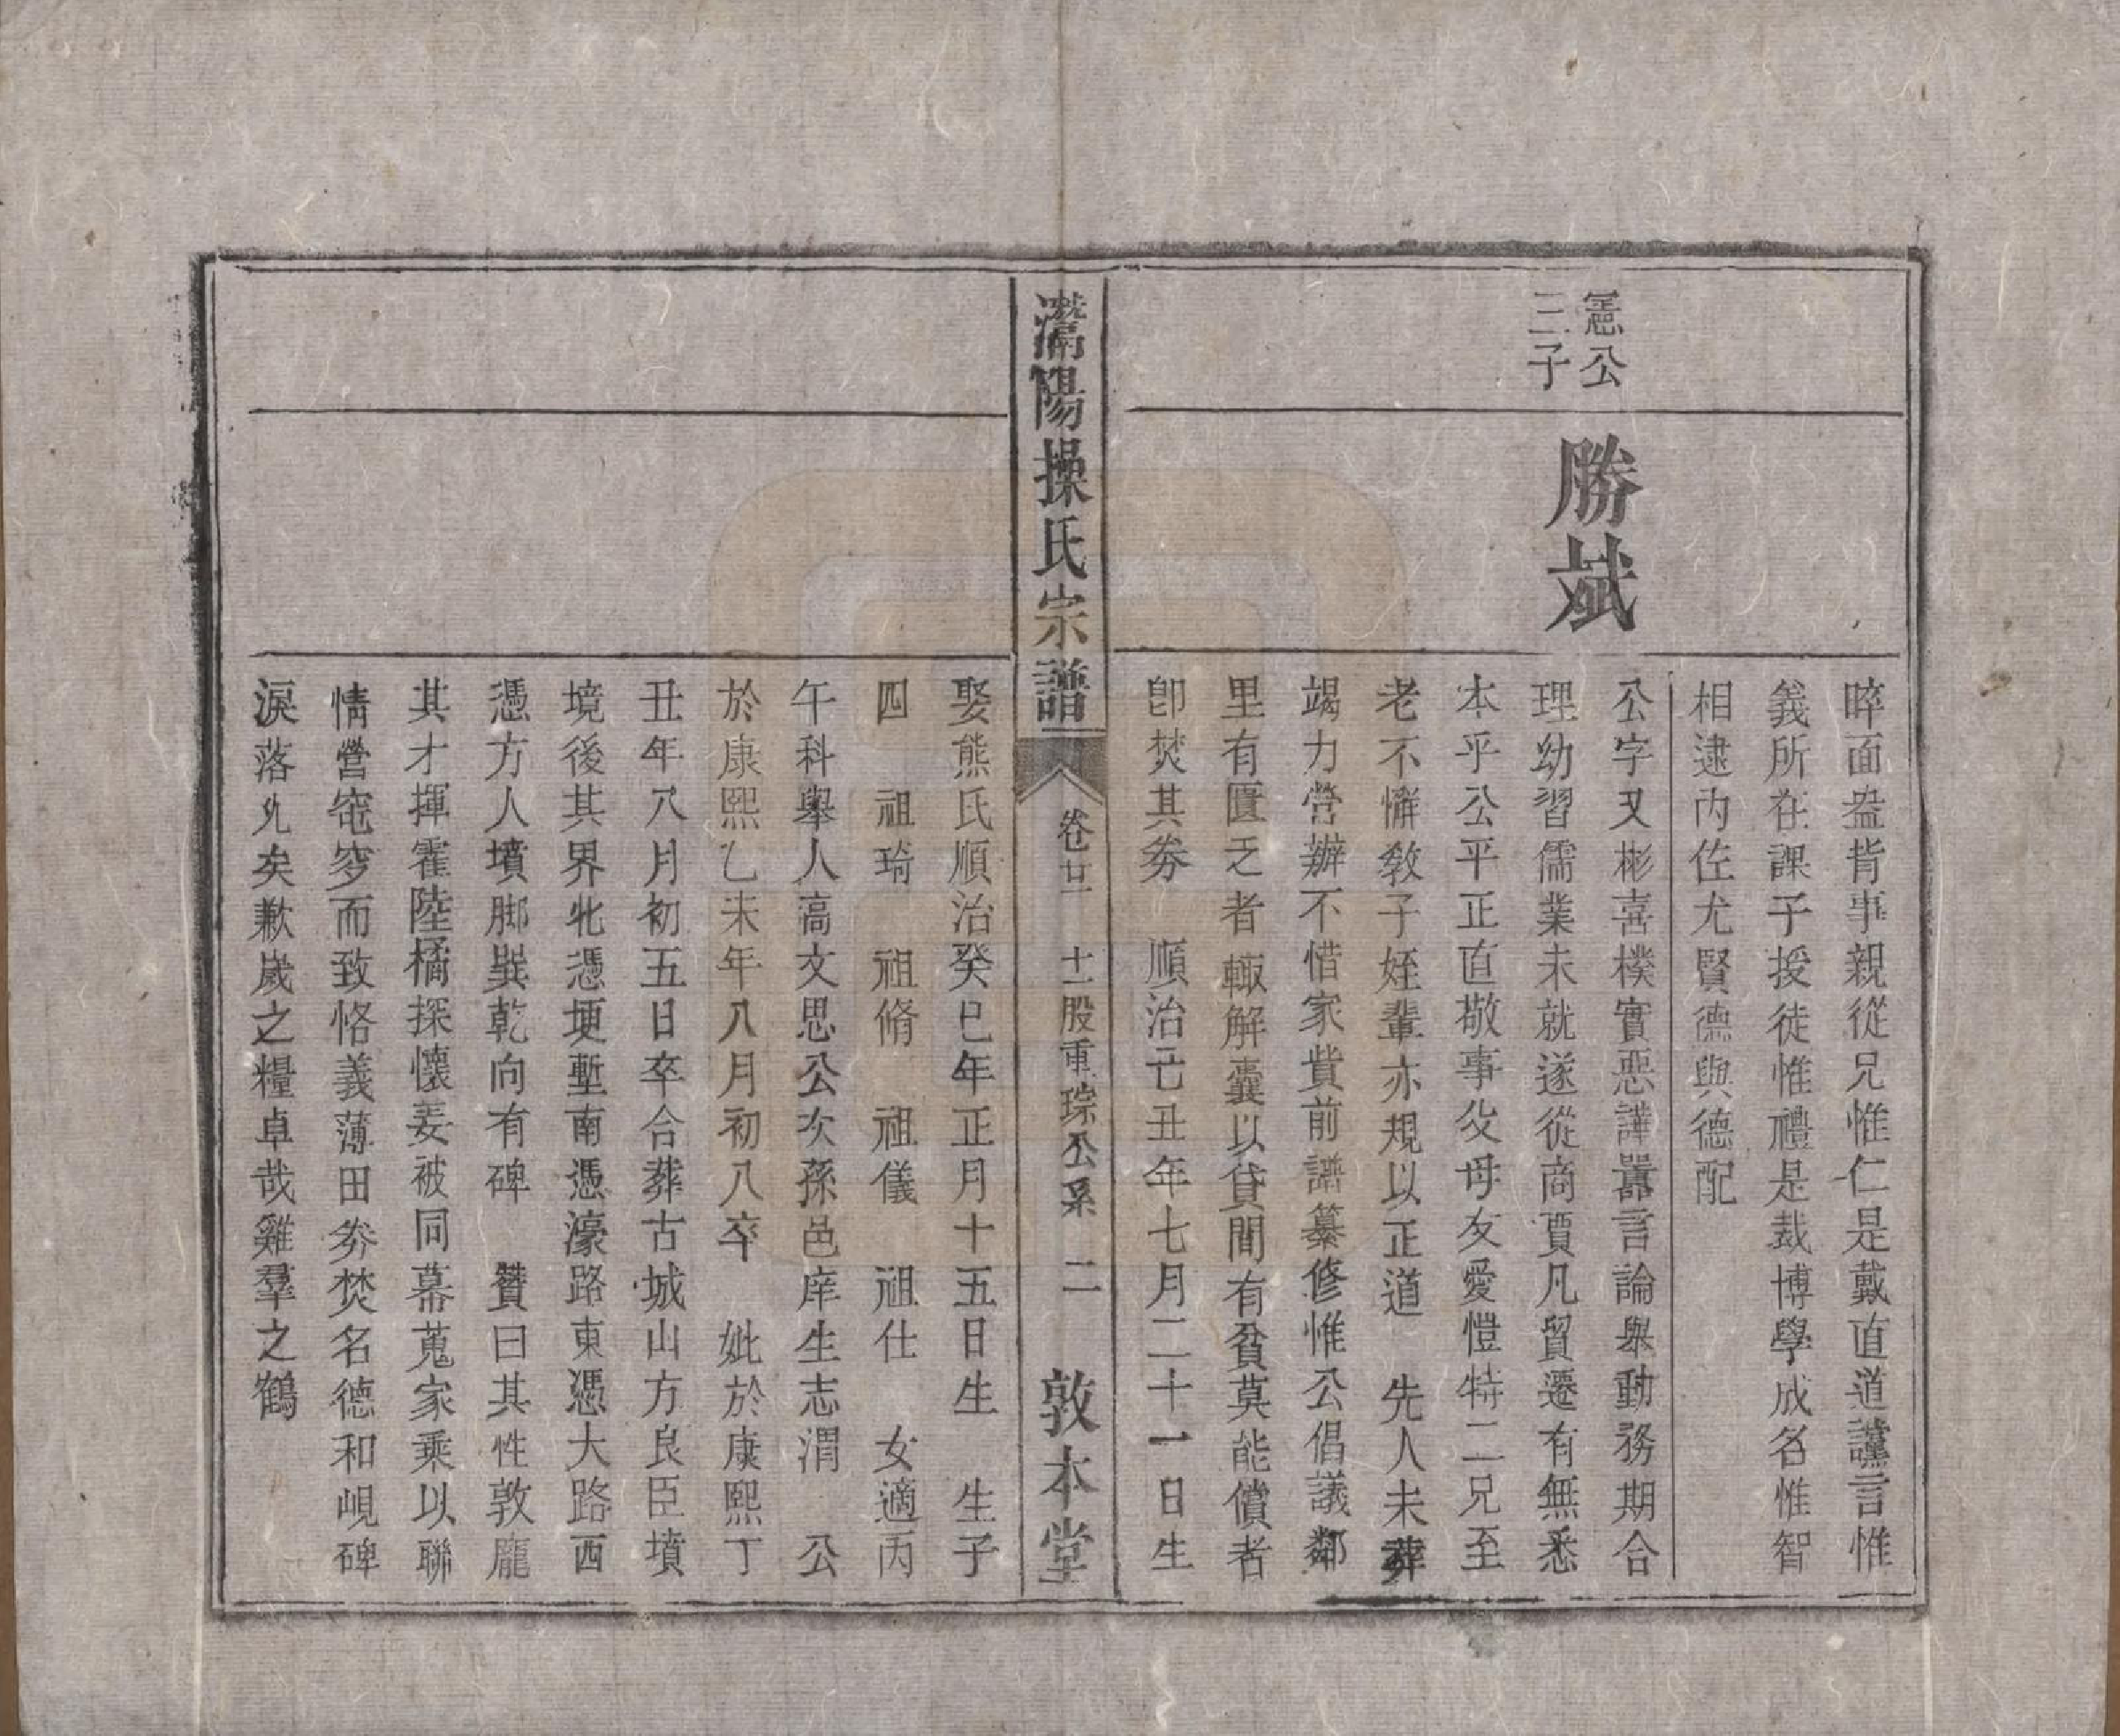 晬面盎背事親從兄惟仁是戴直道讜言惟
義所在課子授徒惟禮是裁博學成名惟智
相逮內佐尤賢德與德配
憲公
三子
勝斌
公字又彬喜樸實惡譁囂言論舉動務期合
理幼習儒業未就遂從商賈凡貿遷有無悉
本乎公平正直敬事父母友愛愷特二兄至
老不懈敎子姪輩亦規以正道　先人未葬
竭力營辦不惜家貲前譜纂修惟公倡議鄰
里有匱乏者輙解囊以貸間有貧莫能償者
卽焚其券　順治己丑年七月二十一日生
灊陽操氏宗譜
卷廿二　十一股重琮公系　二
敦本堂
娶熊氏順治癸巳年正月十五日生　生子
四　祖琦　祖脩　祖儀　祖仕　女適丙
午科舉人高文思公次孫邑庠生志渭　公
於康熙乙未年八月初八卒　妣於康熙丁
丑年八月初五日卒合葬古城山方良臣墳
境後其界北憑埂塹南憑濠路東憑大路西
憑方人墳脚巽乾向有碑　贊曰其性敦龐
其才揮霍陸橘探懷姜被同幕蒐家乘以聯
情營窀穸而致恪義薄田券焚名德和峴碑
淚落允矣歉歲之糧卓哉雞羣之鶴